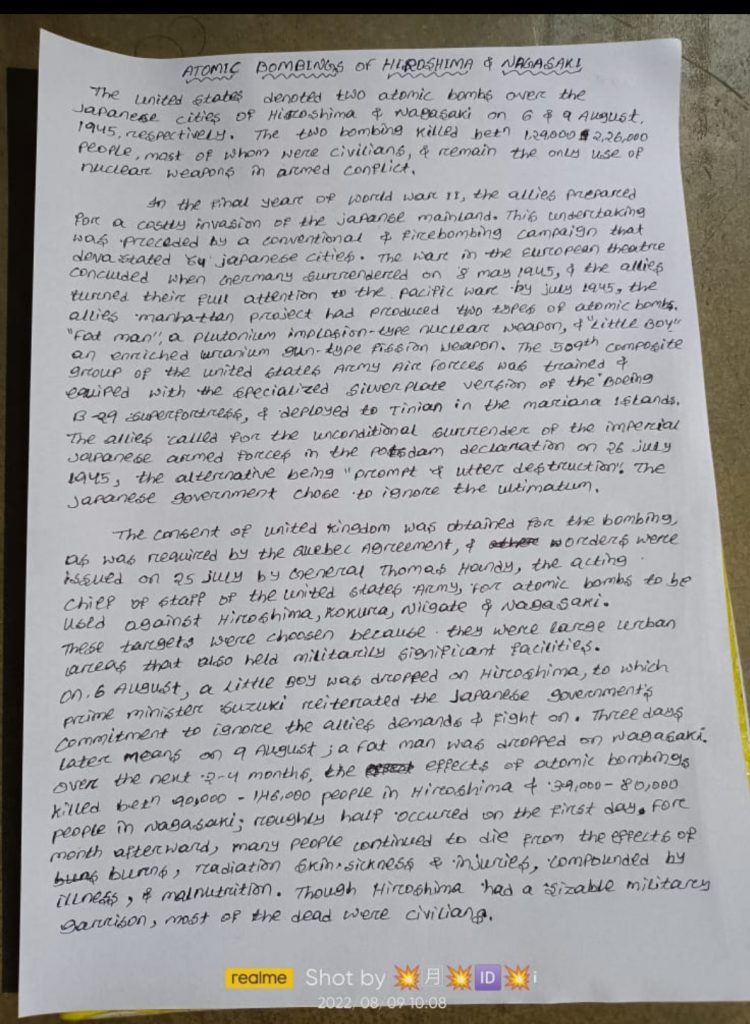 ATOMIC BOMBINGS OF HIROSHIMA & NAGASAKI
The United States denoted two atomic bombs over the
Japanese cities of Hiroshima & Nagasaki on 6 & 9 August,
1945, respectively. The two bombing killed betn 1,29,000 & 2,26,000
people, most of whom were civilians, & remain the only use of
nuclear weapons in armed conflict.
In the final year of World War II, the allies prepared
for a costly invasion of the japanse mainland. This undertaking
was preceded by a conventional & firebombing campaign that
devastated 64 japanese cities. The war in the European theatre
concluded when Germany surrendered on 8 may 1945, & the allies
turned their full attention to the pacific war. by july 1945, the
allies manhattan project had produced two types of atomic bombs.
"Fat man", a plutonium implosion-type nuclear weapon, & "Little Boy"
an enriched uranium gun-type fission weapon. The 509th composite
group of the united states Army Air Forces was trained &
equiped with the specialized silverplate version of the Boeing
B-29 superfortress, & deployed to Tinian in the mariana Islands.
The allies called for the unconditional surrender of the imperial
japanese armed forces in the Potsdam declaration on 26 july
1945, the alternative being "prompt & utter destruction". The
japanese government chose to ignore the ultimatum.
The consent of united kingdom was obtained for the bombing,
as was required by the Quebec Agreement, & orders were
issued on 25 july by General Thomas Handy, the acting
chief of staff of the united states Army, for atomic bombs to be
used against Hiroshima, Kokura, Niigate & Nagasaki.
These targets were choosen because they were large urban
areas that also held militarily significant facilities.
On 6 August, a Little Boy was dropped on Hiroshima, to which
prime minister suzuki reiterated the Japanese government's
commitment to ignore the allies demands & fight on. Three days
later means on 9 August ; a Fat man was dropped on Nagasaki.
over the next 2-4 months, the effects of atomic bombings
killed betn 90,000 - 146,000 people in Hiroshima & 39,000 - 80,000
people in Nagasaki; roughly half occured on the first day. For
month afterward, many people continued to die from the effects of
burns, radiation skin sickness & injuries, compounded by
illness, & malnutrition. Though Hiroshima had a sizable military
garrison, most of the dead were civilians.
realme Shot by 💥月💥🆔💥i
2022/08/09 10:08